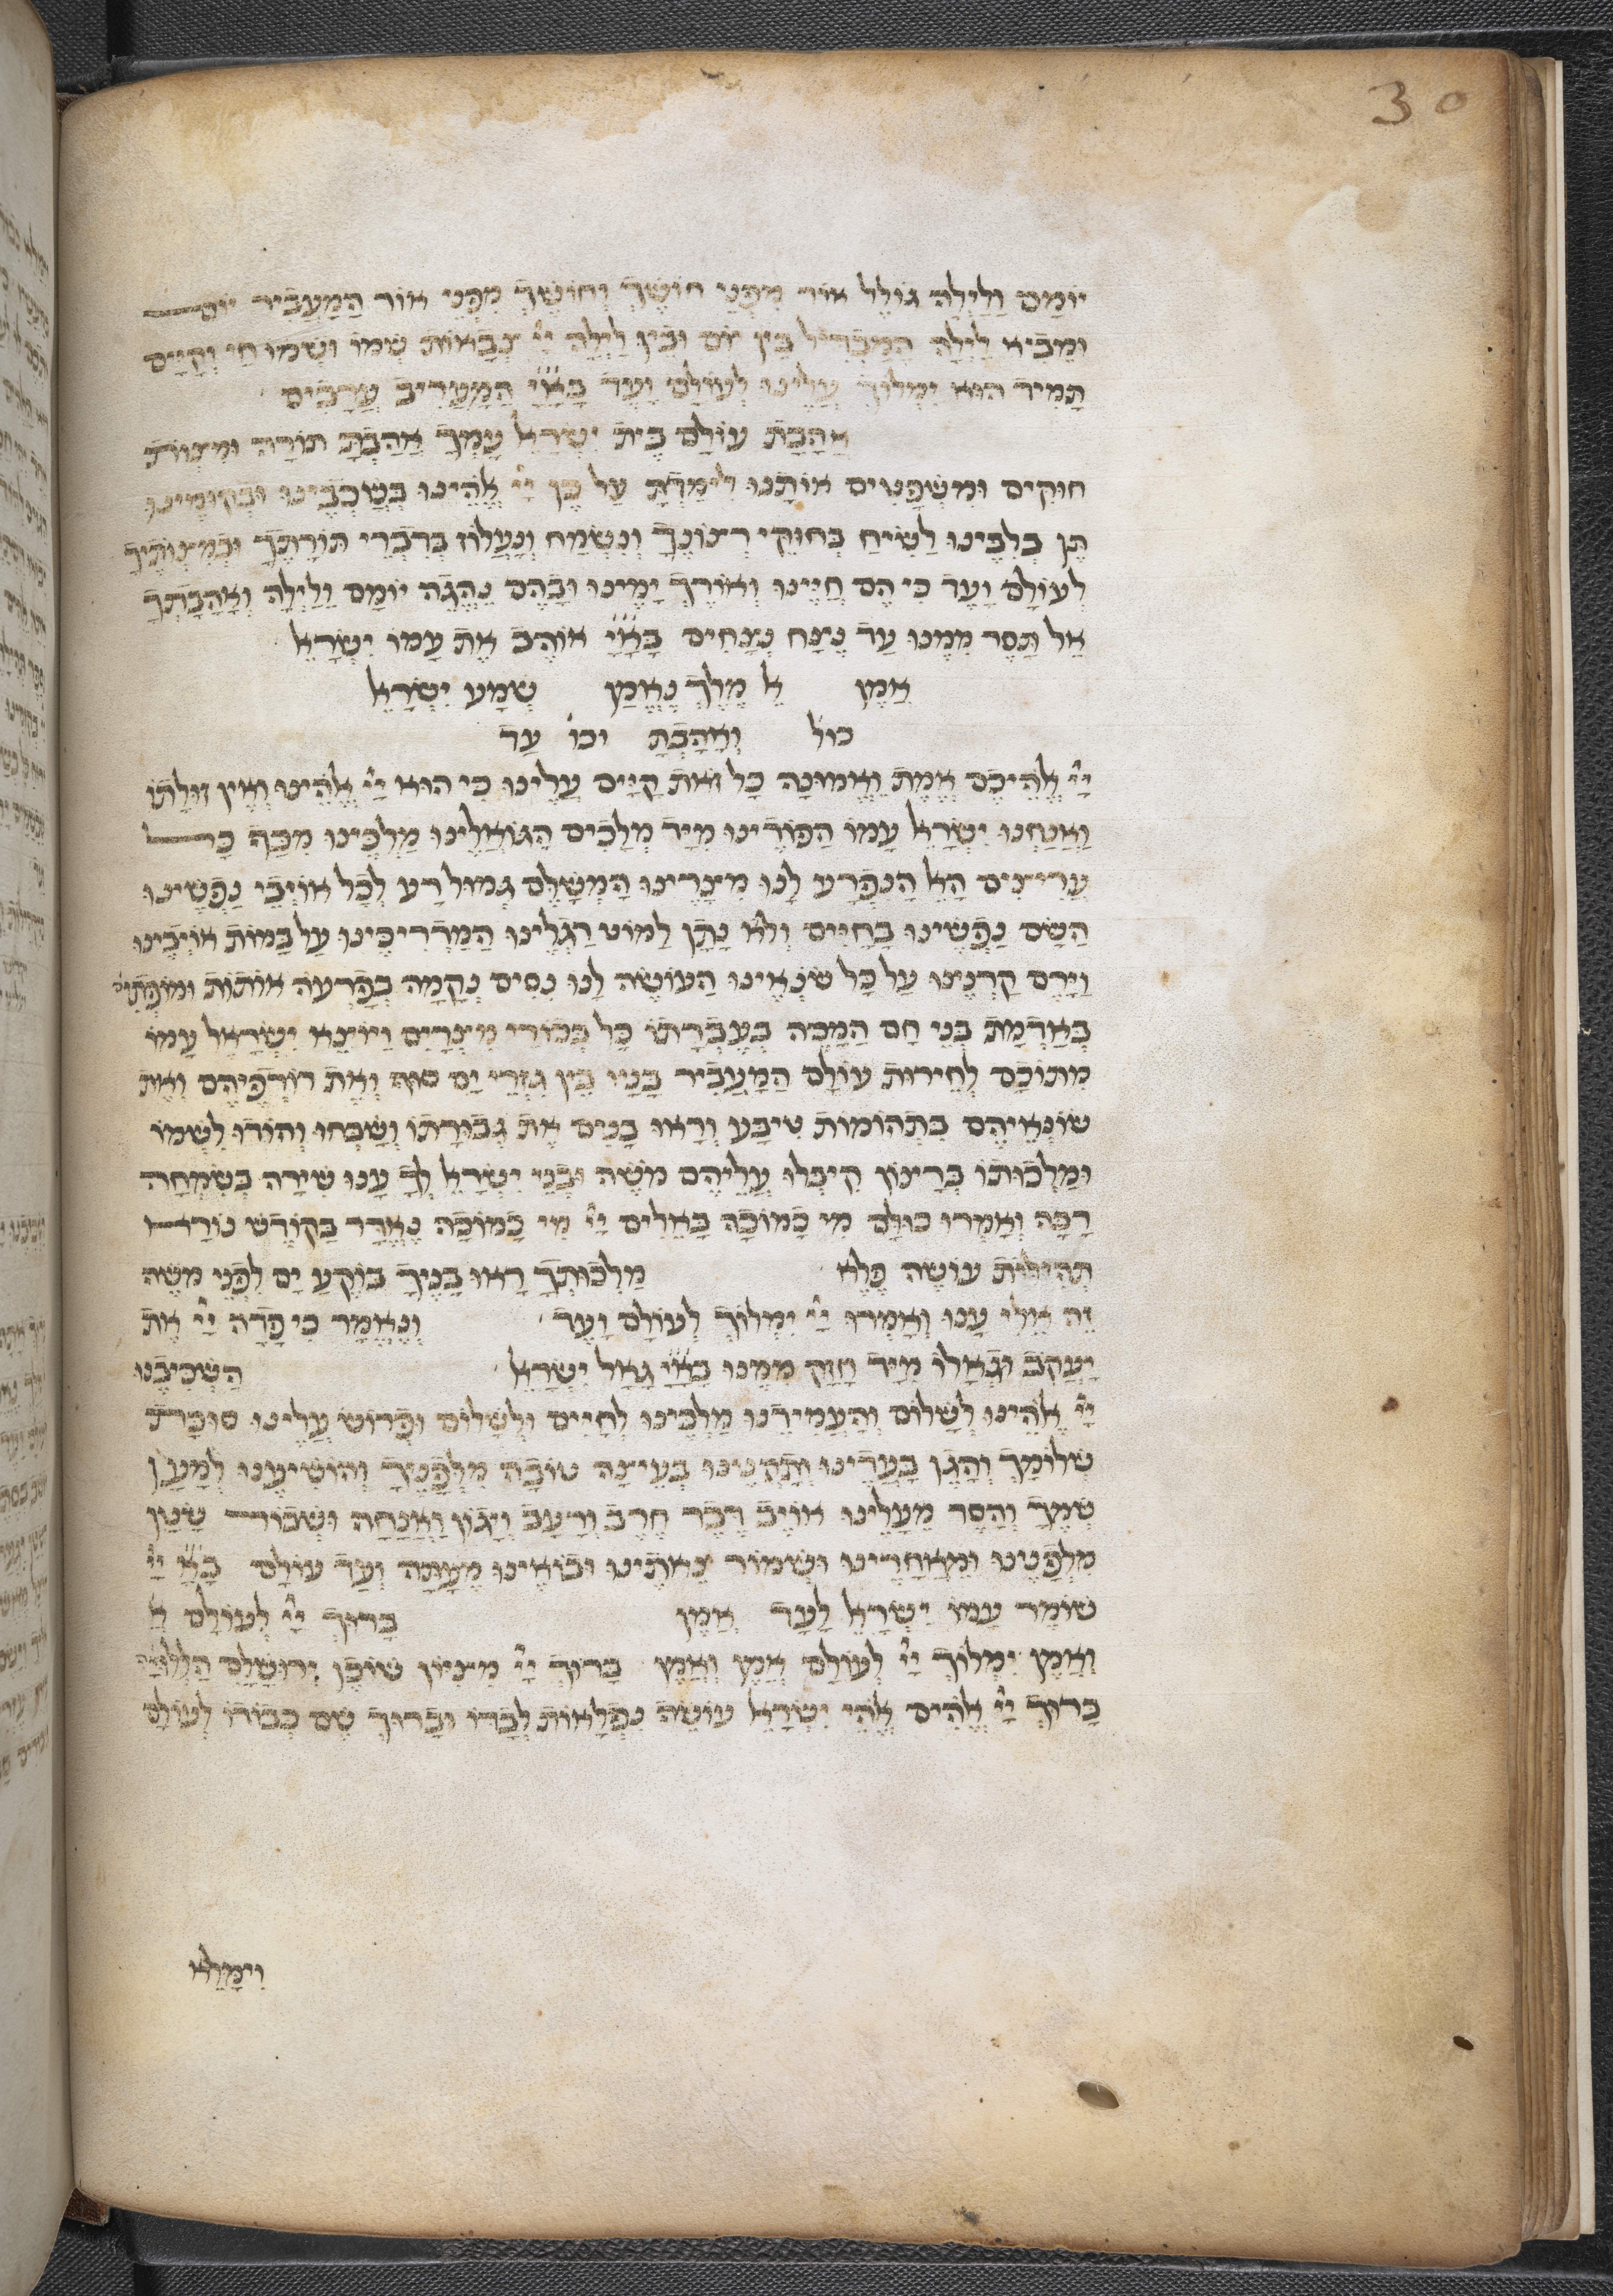 30
יומם ולילה גולל אור מפני חושך וחושך מפני אור המעביר יום
ומביא לילה המבדיל בין יום ובין לילה יי צבאות שמו ושמו חי וקיים
תמיד הוא ימלוך עלינו לעולם ועד בא״יי המעריב ערבים
אהבת עולם בית ישראל עמך אהבת תורה ומצות
חוקים ומשפטים אותנו לימדת על כן יי אלהינו בשכבינו ובקומינו
תן בלבינו לשיח בחוקי רצונך ונשמח ונעלוז בדברי תורתך ובמצותיך
לעולם ועד כי הם חיינו ואורך ימינו ובהם נהגה יומם ולילה ואהבתך
אל תסר ממנו עד נצח נצחים בא״יי אוהב את עמו ישראל
אמן אל מלך נאמן שמע ישראל
כול׳ ואהבת וכו׳ עד
יי אלהיכם אמת ואמונה כל זאת קיים עלינו כי הוא יי אלהינו ואין זולתו
ואנחנו ישראל עמו הפודינו מיד מלכים הגואלינו מלכינו מכף כל
עריצים האל הנפרע לנו מצרינו המשלם גמול רע לכל אויבי נפשינו
השם נפשינו בחיים ולא נתן למוט רגלינו המדריכינו על במות אויבינו
וירם קרנינו על כל שנאינו העושה לנו נסים נקמה בפרעה אותות ומופתי׳
באדמת בני חם המכה בעברתו כל בכורי מצרים ויוצא ישראל עמו
מתוכם לחירות עולם המעביר בניו בין גזרי ים סוף ואת רודפיהם ואת
שונאיהם בתהומות טיבע וראו בנים את גבורתו ושבחו והודו לשמו
ומלכותו ברצון קיבלו עליהם משה ובני ישראל לך ענו שירה בשמחה
רבה ואמרו כולם מי כמוכה באלים יי מי כמוכה נאדר בקודש נורא
תהילות עושה פלא מלכותך ראו בניך בוקע ים לפני משה
זה אלי ענו ואמרו יי ימלוך לעולם ועד ונאמר כי פדה יי את
יעקב וגאלו מיד חזק ממנו בא״יי גאל ישראל השכיבנו
יי אלהינו לשלום והעמידנו מלכינו לחיים ולשלום ופרוש עלינו סוכת
שלומך והגן בעדינו ותקנינו בעיצה טובה מלפניך והושיענו למען
שמך והסר מעלינו אויב דבר חרב ורעב ויגון ואנחה ושבור שטן
מלפנינו ומאחרינו ושמור צאתינו ובואינו מעתה ועד עולם בא״ יי
שומר עמו ישראל לעד אמן ברוך יי לעולם א
ואמן ימלוך יי לעולם אמן ואמן ברוך יי מציון שוכן ירושלם הללויה
ברוך יי אלהים אלהי ישראל עושה נפלאות לבדו וברוך שם כבודו לעולם
וימלא